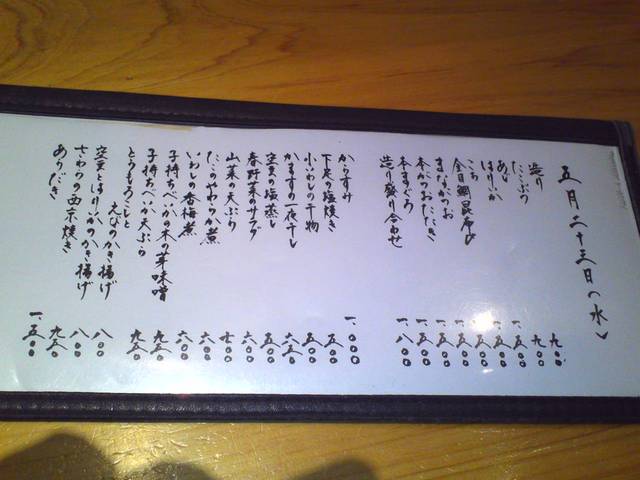 五月二十三日(水)
造り
たこぶつ 九〇〇
あじ 九〇〇
ほたるいか
こち
金目鯛昆布〆
まながつお
本かつおたたき
本まぐろ
造り盛り合わせ 一、八〇〇
からすみ 一、〇〇〇
下足の塩焼き 五〇〇
小いわしの干物 五〇〇
かますの一夜干し 六五〇
空豆の塩蒸し 五〇〇
春野菜のサラダ 六〇〇
山菜の天ぷら 七〇〇
たこやわらか煮 六〇〇
いわしの香梅煮 六〇〇
子持ちべいか木の芽味噌 九五〇
子持ちべいか天ぷら 九五〇
とうもろこしと
えびのかき揚げ 八〇〇
空豆と
かき揚げ 八〇〇
さわらの西京焼き 九五〇
一、五〇〇